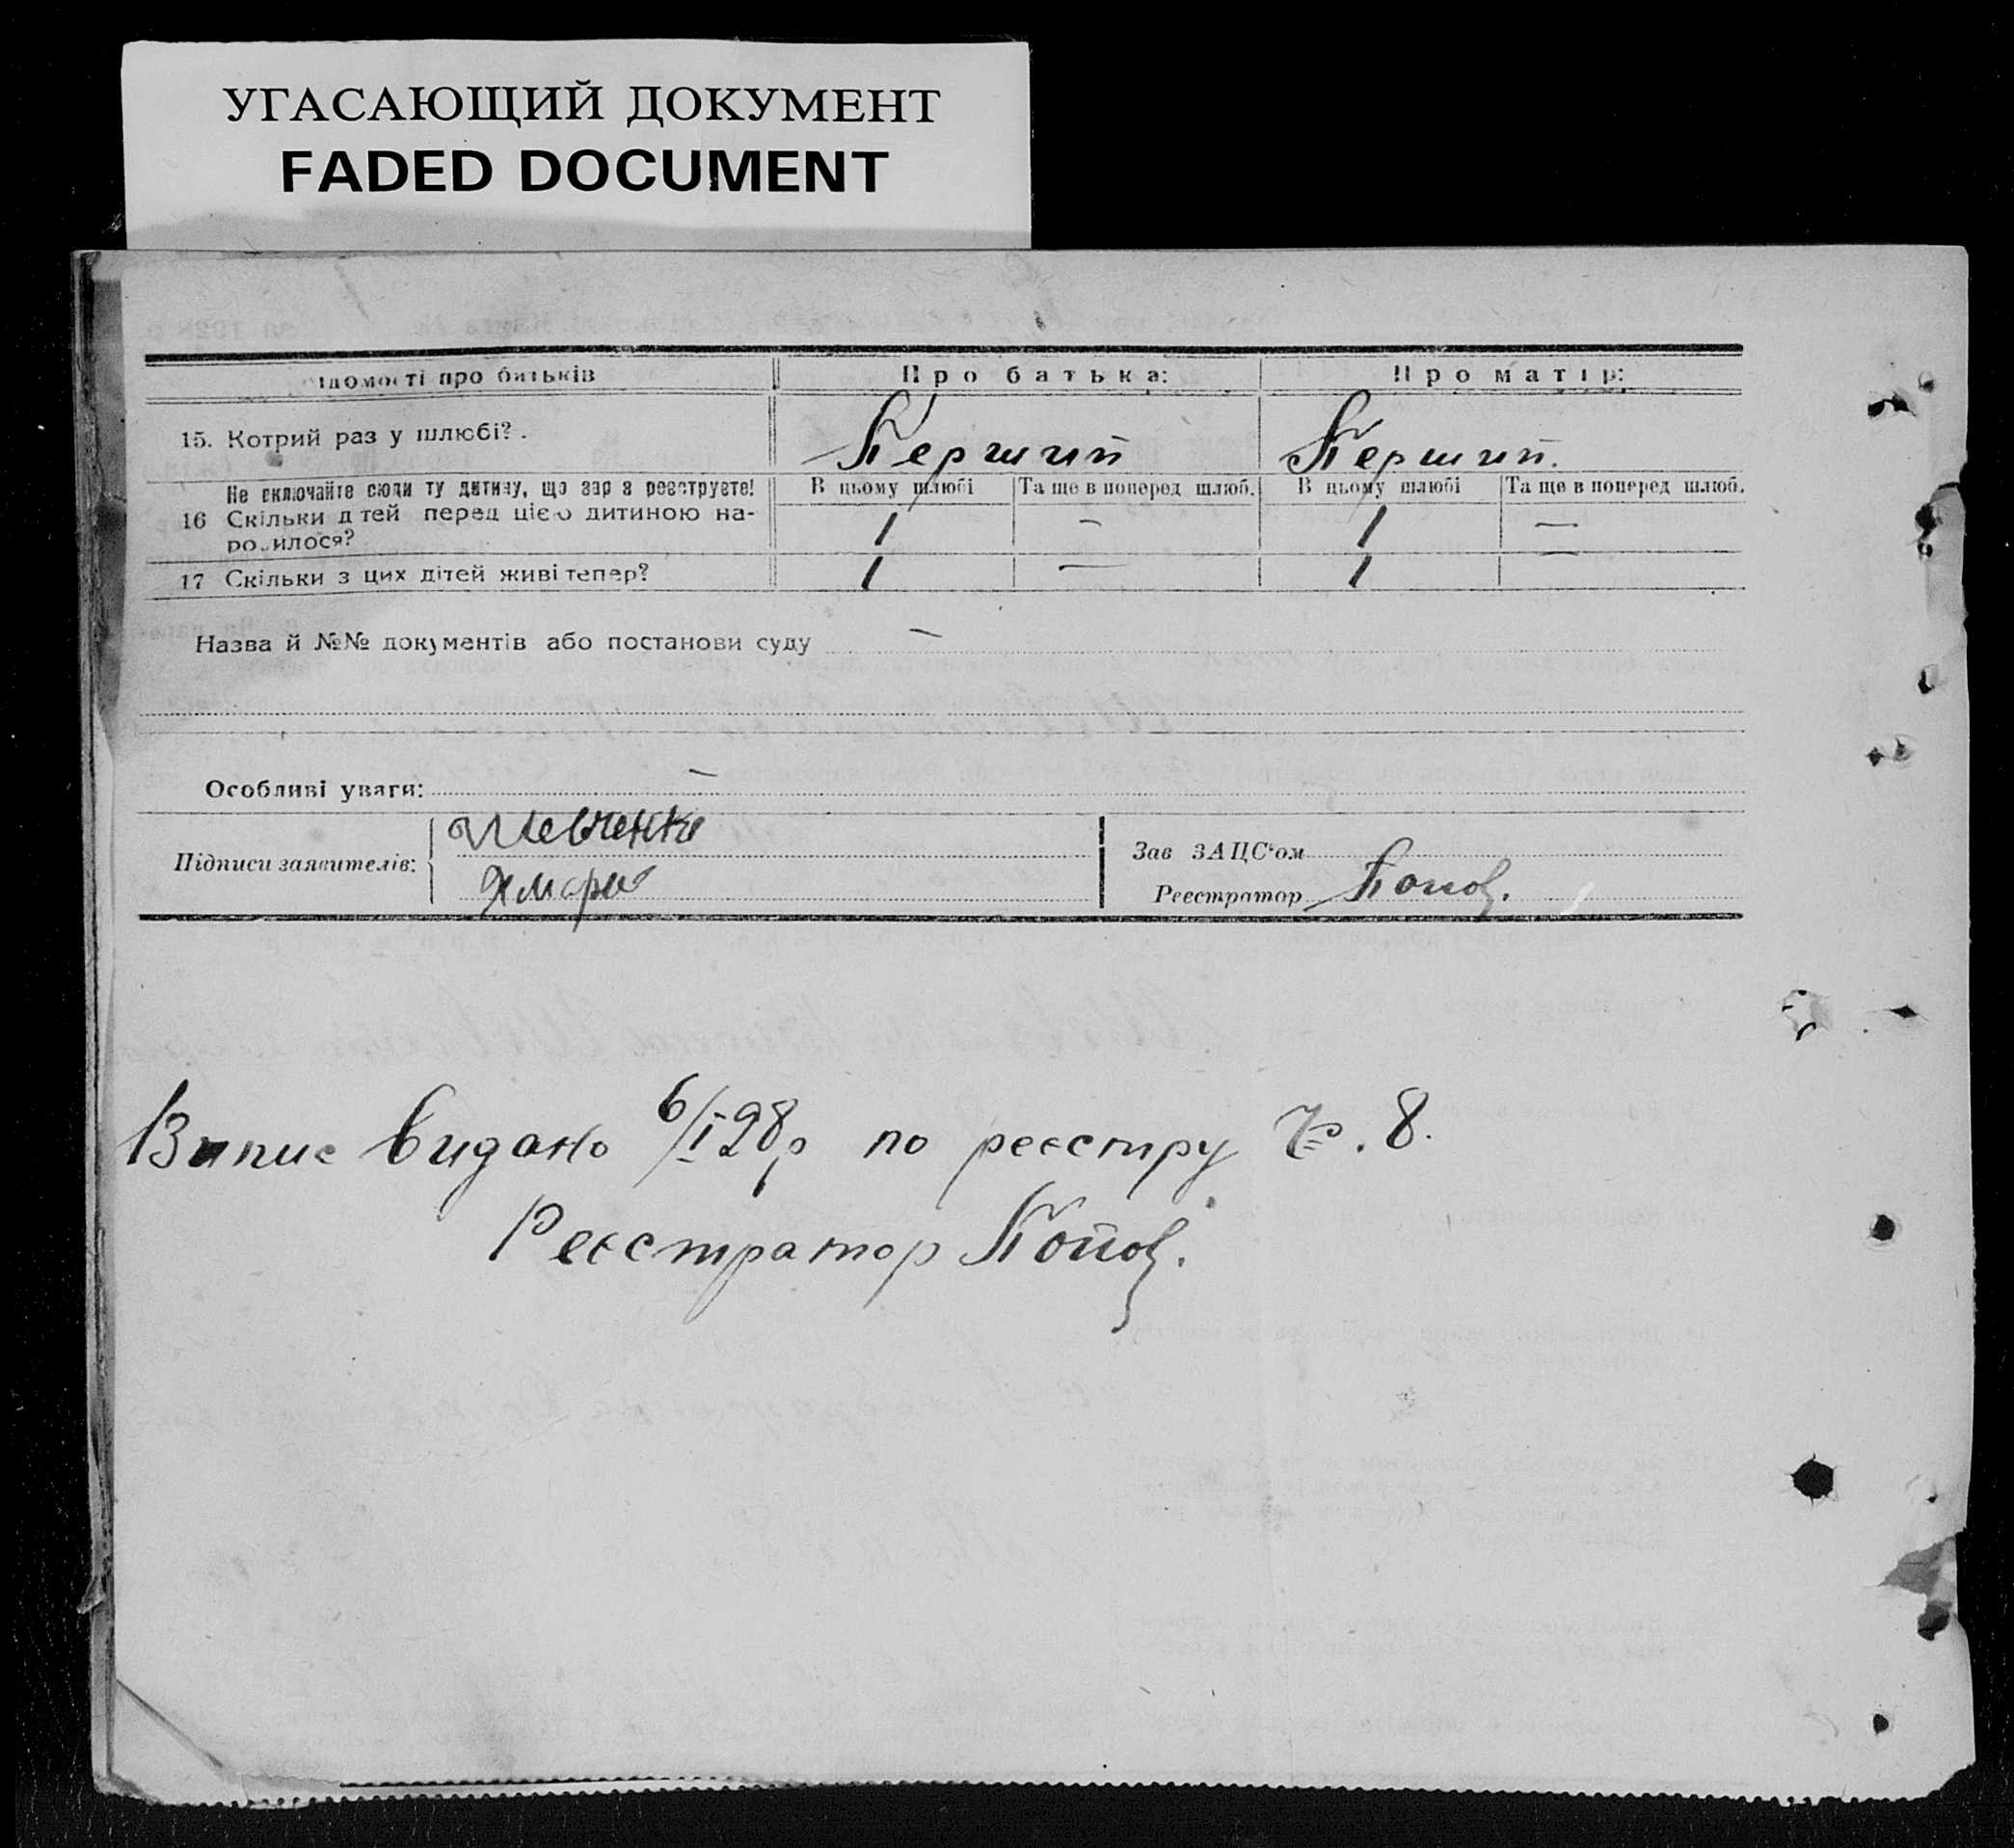 УГАСАЮЩИЙ ДОКУМЕНТ
FADED DOCUMENT
ідомості про батьків Про батька: Про матір:
15. Котрий раз у шлюбі? . Перший Перший.
Не включайте сюди ту дитину, що зар з реєструєте! В цьому шлюбі Та ще в поперед шлюб. В цьому шлюбі Та ще в поперед шлюб.
16 Скільки д тей перед цією дитиною на- 1 — 1 —
ро илося?
17 Скільки з цих дітей живі тепер? 1 — 1 —
Назва й №№ документів або постанови суду —
Особливі уваги: —
Підписи заявителів: Шевченко
Зав ЗАЦС'ом
Реєстратор Попов.
Випис видано 6/I-28р по реєстру №. 8.
Реєстратор Попов.